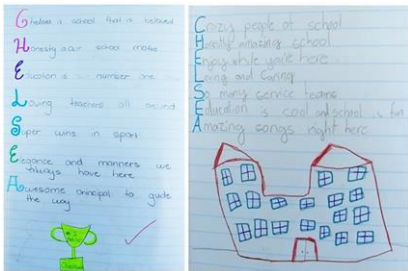 Chelsea is school that is beloved
Honesty is our school motto
Education is number one
Loving teachers all around
Super wins in sport
Elegance and manners we
always have here
Awesome principal to guide
the way
Crazy people at school
Honestly amazing school
Enjoy while you're here
Loving and Caring
So many service teams
Education is cool and school is fun
Amazing songs right here